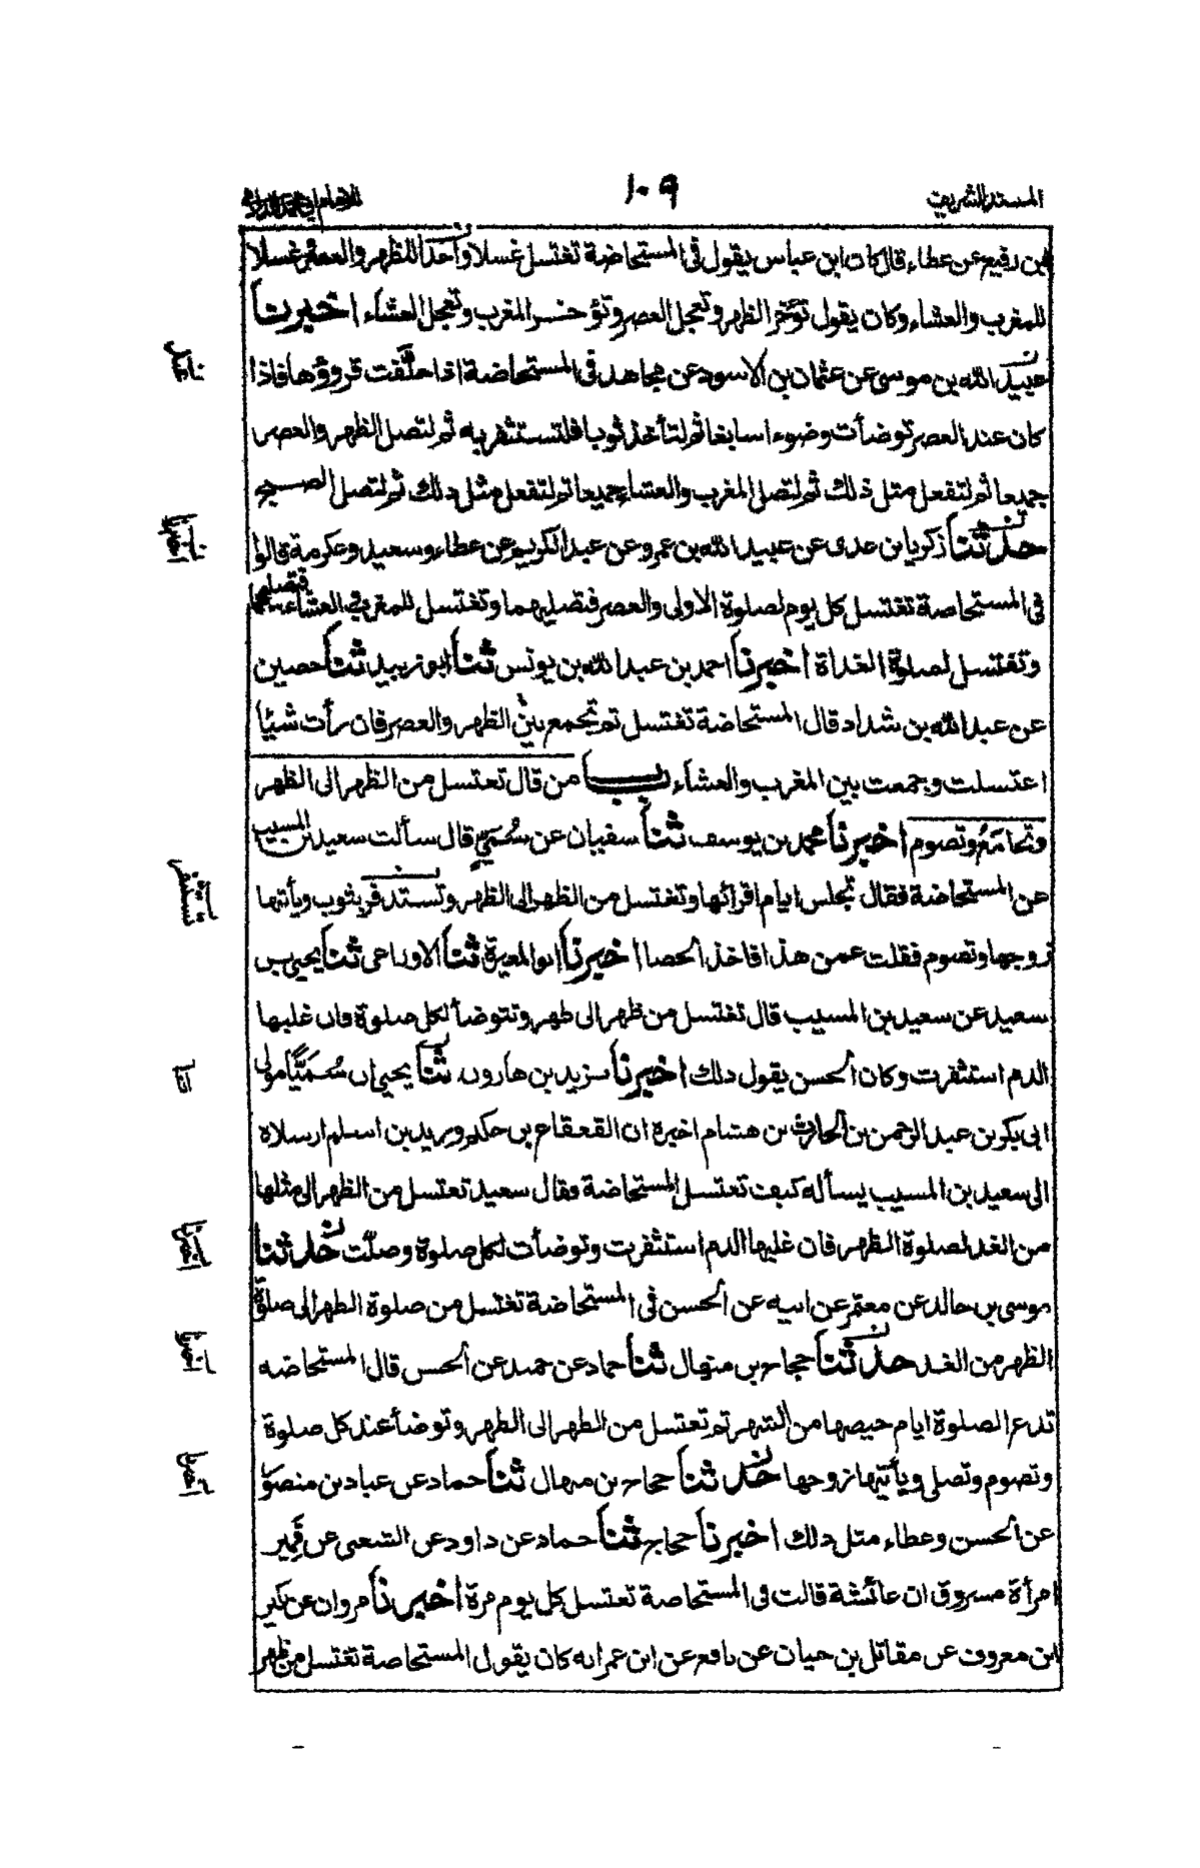 المسند الشريف
١٠٩
للإمام أبي محمد الدارمي
بن رفيع عن عطاء قال كان ابن عباس يقول فى المستحاضة تغتسل غسلا واحدا للظهر والعصر وغسلا
للمغرب والعشاء وكان يقول تؤخر الظهر وتعجل العصر وتؤخر المغرب وتعجل العشاء اخبرنا
عبيد الله بن موسى عن عثمان بن الاسود عن مجاهد فى المستحاضة اذا خلفت قروؤها فاذا
كان عند العصر توضأت وضوء اسابغا ثم لتأخذ ثوبا فلتستثفر به ثم لتصل الظهر والعصر
جميعا ثم لتفعل مثل ذلك ثم لتصل المغرب والعشاء جميعا ثم لتفعل مثل ذلك ثم لتصل الصبح
حدثنا زكريا بن عدى عن عبيد الله بن عمرو عن عبد الكريم عن عطاء وسعيد وعكرمة قالوا
فى المستحاضة تغتسل كل يوم لصلوة الاولى والعصر فتصليهما وتغتسل للمغرب والعشاء فتصليهما
وتغتسل لصلوة الغداة اخبرنا احمد بن عبد الله بن يونس ثنا ابو زبيد ثنا حصين
عن عبد الله بن شداد قال المستحاضة تغتسل ثم تجمع بين الظهر والعصر فان رأت شيئا
اغتسلت وجمعت بين المغرب والعشاء باب من قال تغتسل من الظهر الى الظهر
وتجامع وتصوم اخبرنا محمد بن يوسف ثنا سفيان عن سمي قال سألت سعيد بن المسيب
عن المستحاضة فقال تجلس ايام اقرائها وتغتسل من الظهر الى الظهر وتستدفر بثوب ويأتيها
زوجها وتصوم فقلت عمن هذا فاخذ الحصا اخبرنا ابو المغيرة ثنا الاوزاعى ثنا يحيى بن
سعيد عن سعيد بن المسيب قال تغتسل من ظهر الى ظهر وتتوضأ لكل صلوة فان غلبها
الدم استثفرت وكان الحسن يقول ذلك اخبرنا يزيد بن هارون ثنا يحيى ان سميا مولى
ابى بكر بن عبد الرحمن بن الحارث بن هشام اخبره ان القعقاع بن حكيم وزيد بن اسلم ارسلاه
الى سعيد بن المسيب يسأله كيف تغتسل المستحاضة فقال سعيد تغتسل من الظهر الى مثلها
من الغد لصلوة الظهر فان غلبها الدم استثفرت وتوضأت لكل صلوة وصلت حدثنا
موسى بن خالد عن معتمر عن ابيه عن الحسن فى المستحاضة تغتسل من صلوة الظهر الى صلوة
الظهر من الغد حدثنا حجاج بن منهال ثنا حماد عن حميد عن الحسن قال المستحاضة
تدع الصلوة ايام حيضها من الشهر ثم تغتسل من الظهر الى الظهر وتوضأ عند كل صلوة
وتصوم وتصلى ويأتيها زوجها حدثنا حجاج بن منهال ثنا حماد عن عباد بن منصور
عن الحسن وعطاء مثل ذلك اخبرنا حجاج ثنا حماد عن داود عن الشعبى عن قمير
امرأة مسروق ان عائشة قالت فى المستحاضة تغتسل كل يوم مرة اخبرنا مروان عن بكير
ابن معروف عن مقاتل بن حيان عن نافع عن ابن عمر انه كان يقول المستحاضة تغتسل من ظهر
اخبرنا
تستثفر
انا
اخبرنا
اخبرنا
اخبرنا